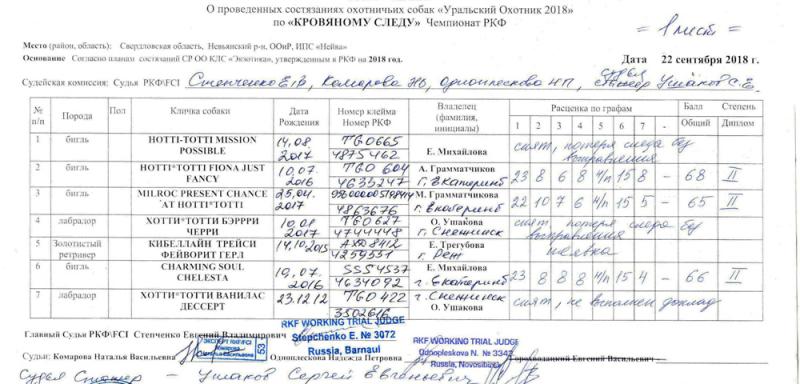 О проведенных состязаниях охотничьих собак «Уральский Охотник 2018»
по «КРОВЯНОМУ СЛЕДУ» Чемпионат РКФ
= 1 лист =
Место (район, область): Свердловская область, Невьянский р-н, ООиР, ИПС «Нейва»
Основание Согласно планам состязаний СР ОО КЛС «Экзотика», утвержденным в РКФ на 2018 год.
Дата 22 сентября 2018 г.
Судейская комиссия: Судья РКФ\FCI Степченко Е.В, Комарова НВ, Одноплескова Н.П, судья стажер Ушаков С.Е.
№ п/п Порода Пол Кличка собаки Дата Рождения Номер клейма Номер РКФ Владелец (фамилия, инициалы) Расценка по графам Балл Степень
1 2 3 4 5 6 7 - Общий Диплом
1 бигль HOTTI-TOTTI MISSION POSSIBLE 14.08 2017 TGO665 4875462 Е. Михайлова снят, потеря следа без выправления
2 бигль HOTTI*TOTTI FIONA JUST FANCY 10.07. 2016 TGO 604 4635247 А. Грамматчиков г. Екатеринб 23 8 6 8 4/п 15 8 - 68 II
3 бигль MILROC PRESENT CHANCE AT HOTTI*TOTTI 25.04. 2017 4863676 М. Грамматчикова г. Екатеринб 22 10 7 6 4/п 15 5 - 65 II
4 лабрадор ХОТТИ*ТОТТИ БЭРРРИ ЧЕРРИ 10.08 2017 TGO627 4744448 О. Ушакова г. Снежинск снят, потеря следа без выправления
5 Золотистый ретривер КИБЕЛЛАЙН ТРЕЙСИ ФЕЙВОРИТ ГЕРЛ 14.10.2015 AXD8412 4259551 Е. Трегубова г. Реж неявка
6 бигль CHARMING SOUL CHELESTA 19.07. 2016 SSS4537 4634092 Е. Михайлова г. Екатеринб 23 8 8 8 4/п 15 4 - 66 II
7 лабрадор ХОТТИ*ТОТТИ ВАНИЛАС ДЕССЕРТ 23.12.12 TGO422 3502616 г. Снежинск О. Ушакова снят, не выполнен доклад
Главный Судья РКФ\FCI Степченко Евгений Владимирович
RKF WORKING TRIAL JUDGE
Stepchenko E. № 3072
Russia, Barnaul
RKF WORKING TRIAL JUDGE
Odnopleskova N. № 3342
Russia, Novosibirsk
Судьи: Комарова Наталья Васильевна
ЭКСПЕРТ RKF/FCI
Комарова
Наталья Васильевна
53
Одноплескова Надежда Петровна
Городвацкий Евгений Васильевич
Судья Стажер - Ушаков Сергей Евгеньевич